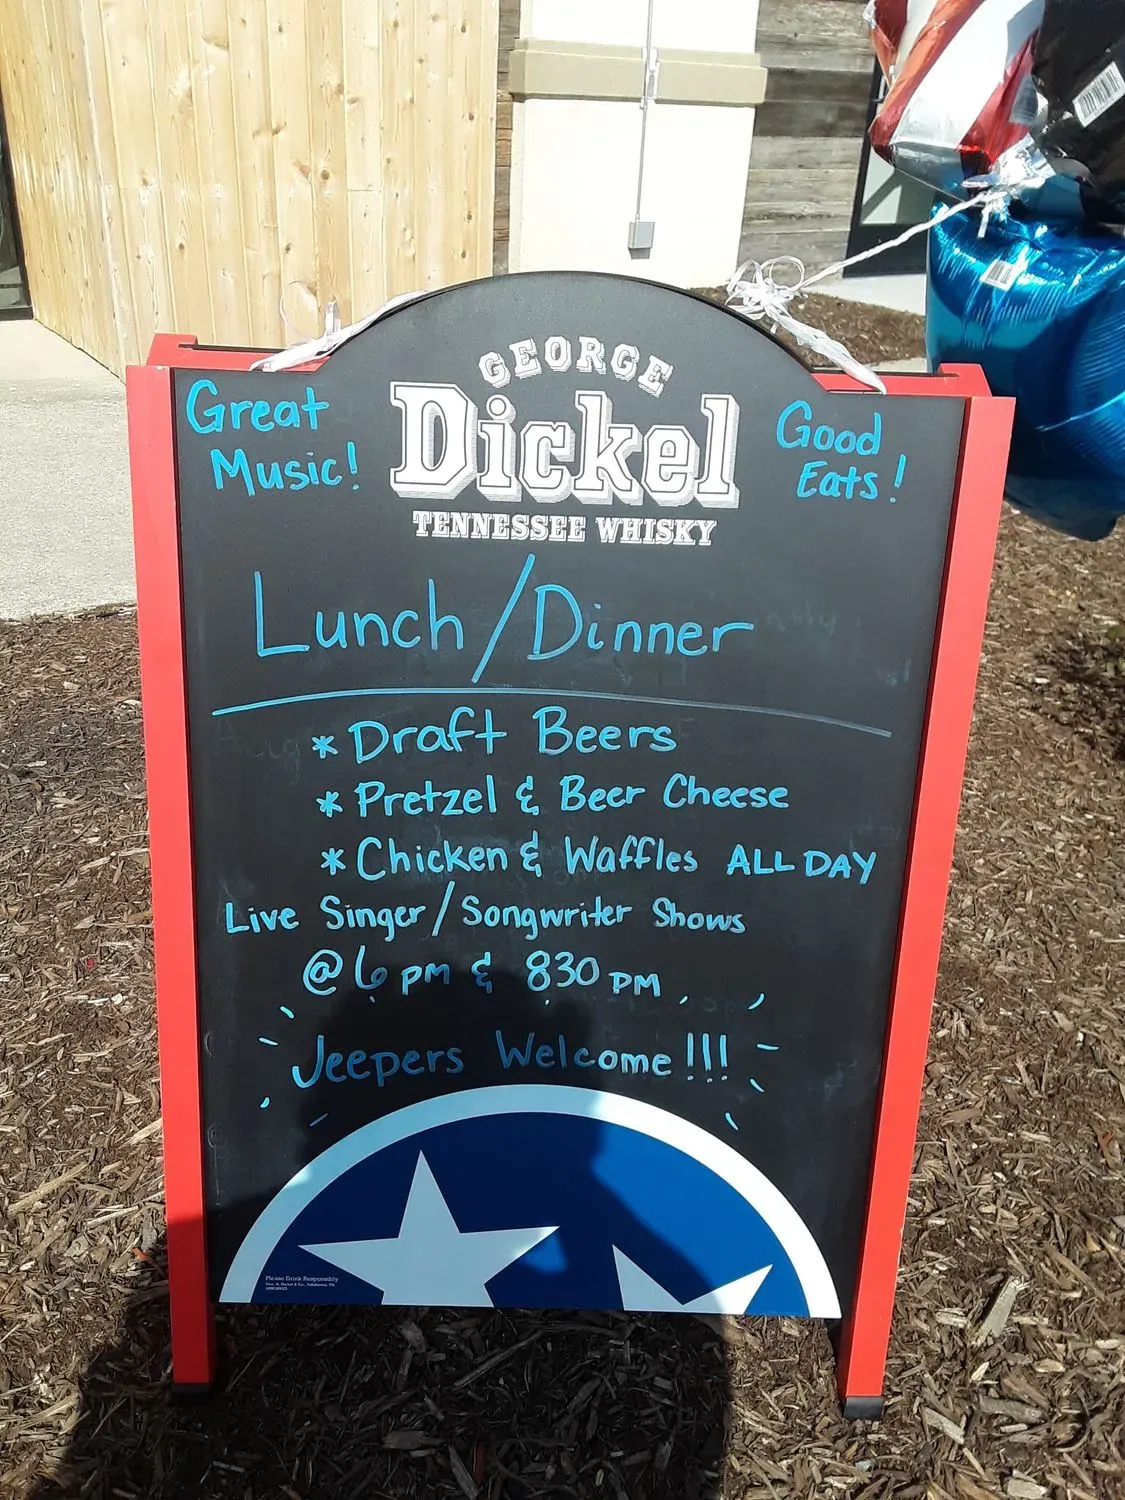 GEORGE
Dickel
TENNESSEE WHISKY
Great
Music!
Good
Eats!
Lunch/Dinner
* Draft Beers
* Pretzel & Beer Cheese
* Chicken & Waffles ALL DAY
Live Singer/Songwriter Shows
@ 6 pm & 830 PM
Jeepers Welcome!!!
Please Drink Responsibly